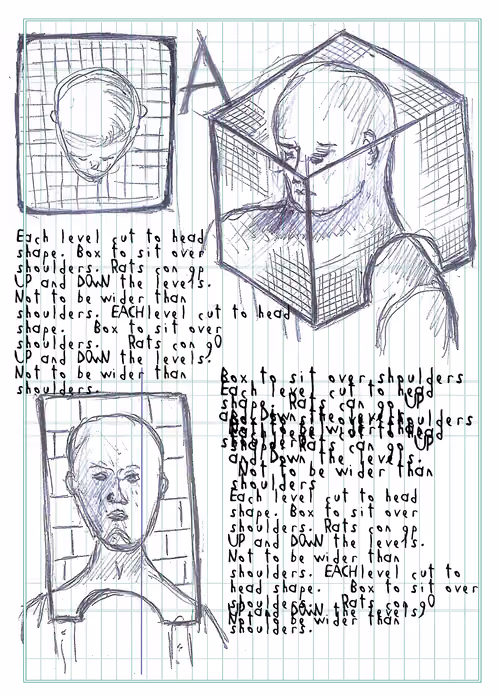 A
Each level cut to head
shape. Box to sit over
shoulders. Rats can gp
UP and DOWN the levels.
Not to be wider than
shoulders. EACHlevel cut to head
shape. Box to sit over
shoulders. Rats can gO
UP and DOWN the levels.
Not to be wider than
shoulders.
Box to sit over shoulders
Each level cut to head
shape. Rats can go UP
and Down the levels.
Not to be wider than
shoulders
Each level cut to head
shape. Box to sit over
shoulders. Rats can gp
UP and DOWN the levels.
Not to be wider than
shoulders. EACHlevel cut to
head shape. Box to sit over
shoulders. Rats can gO
UP and DOWN the levels.
Not to be wider than
shoulders.